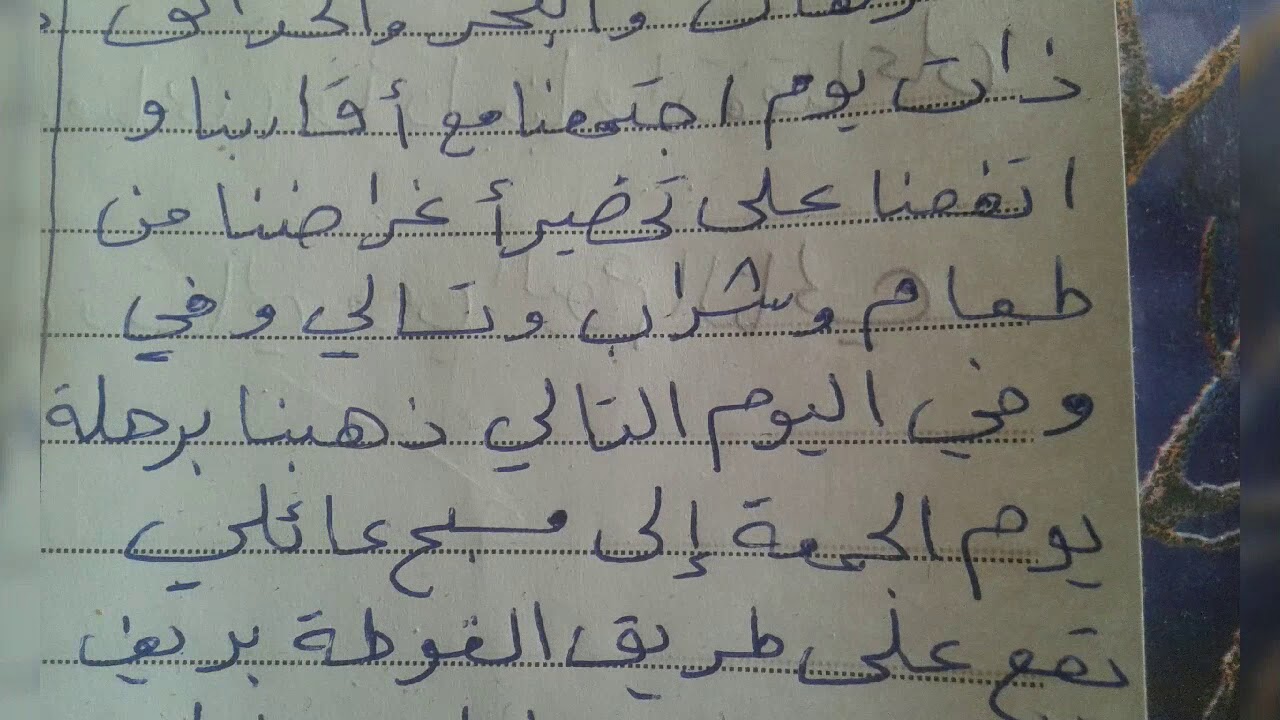 والبحر والحدائق
ذات يوم اجتمعنا مع أقاربنا و
اتفقنا على تحضير أغراضنا من
طعام وشراب وتالي وفي
وفي اليوم التالي ذهبنا برحلة
يوم الجمعة إلى مسبح عائلي
تقع على طريق الغوطة بريف